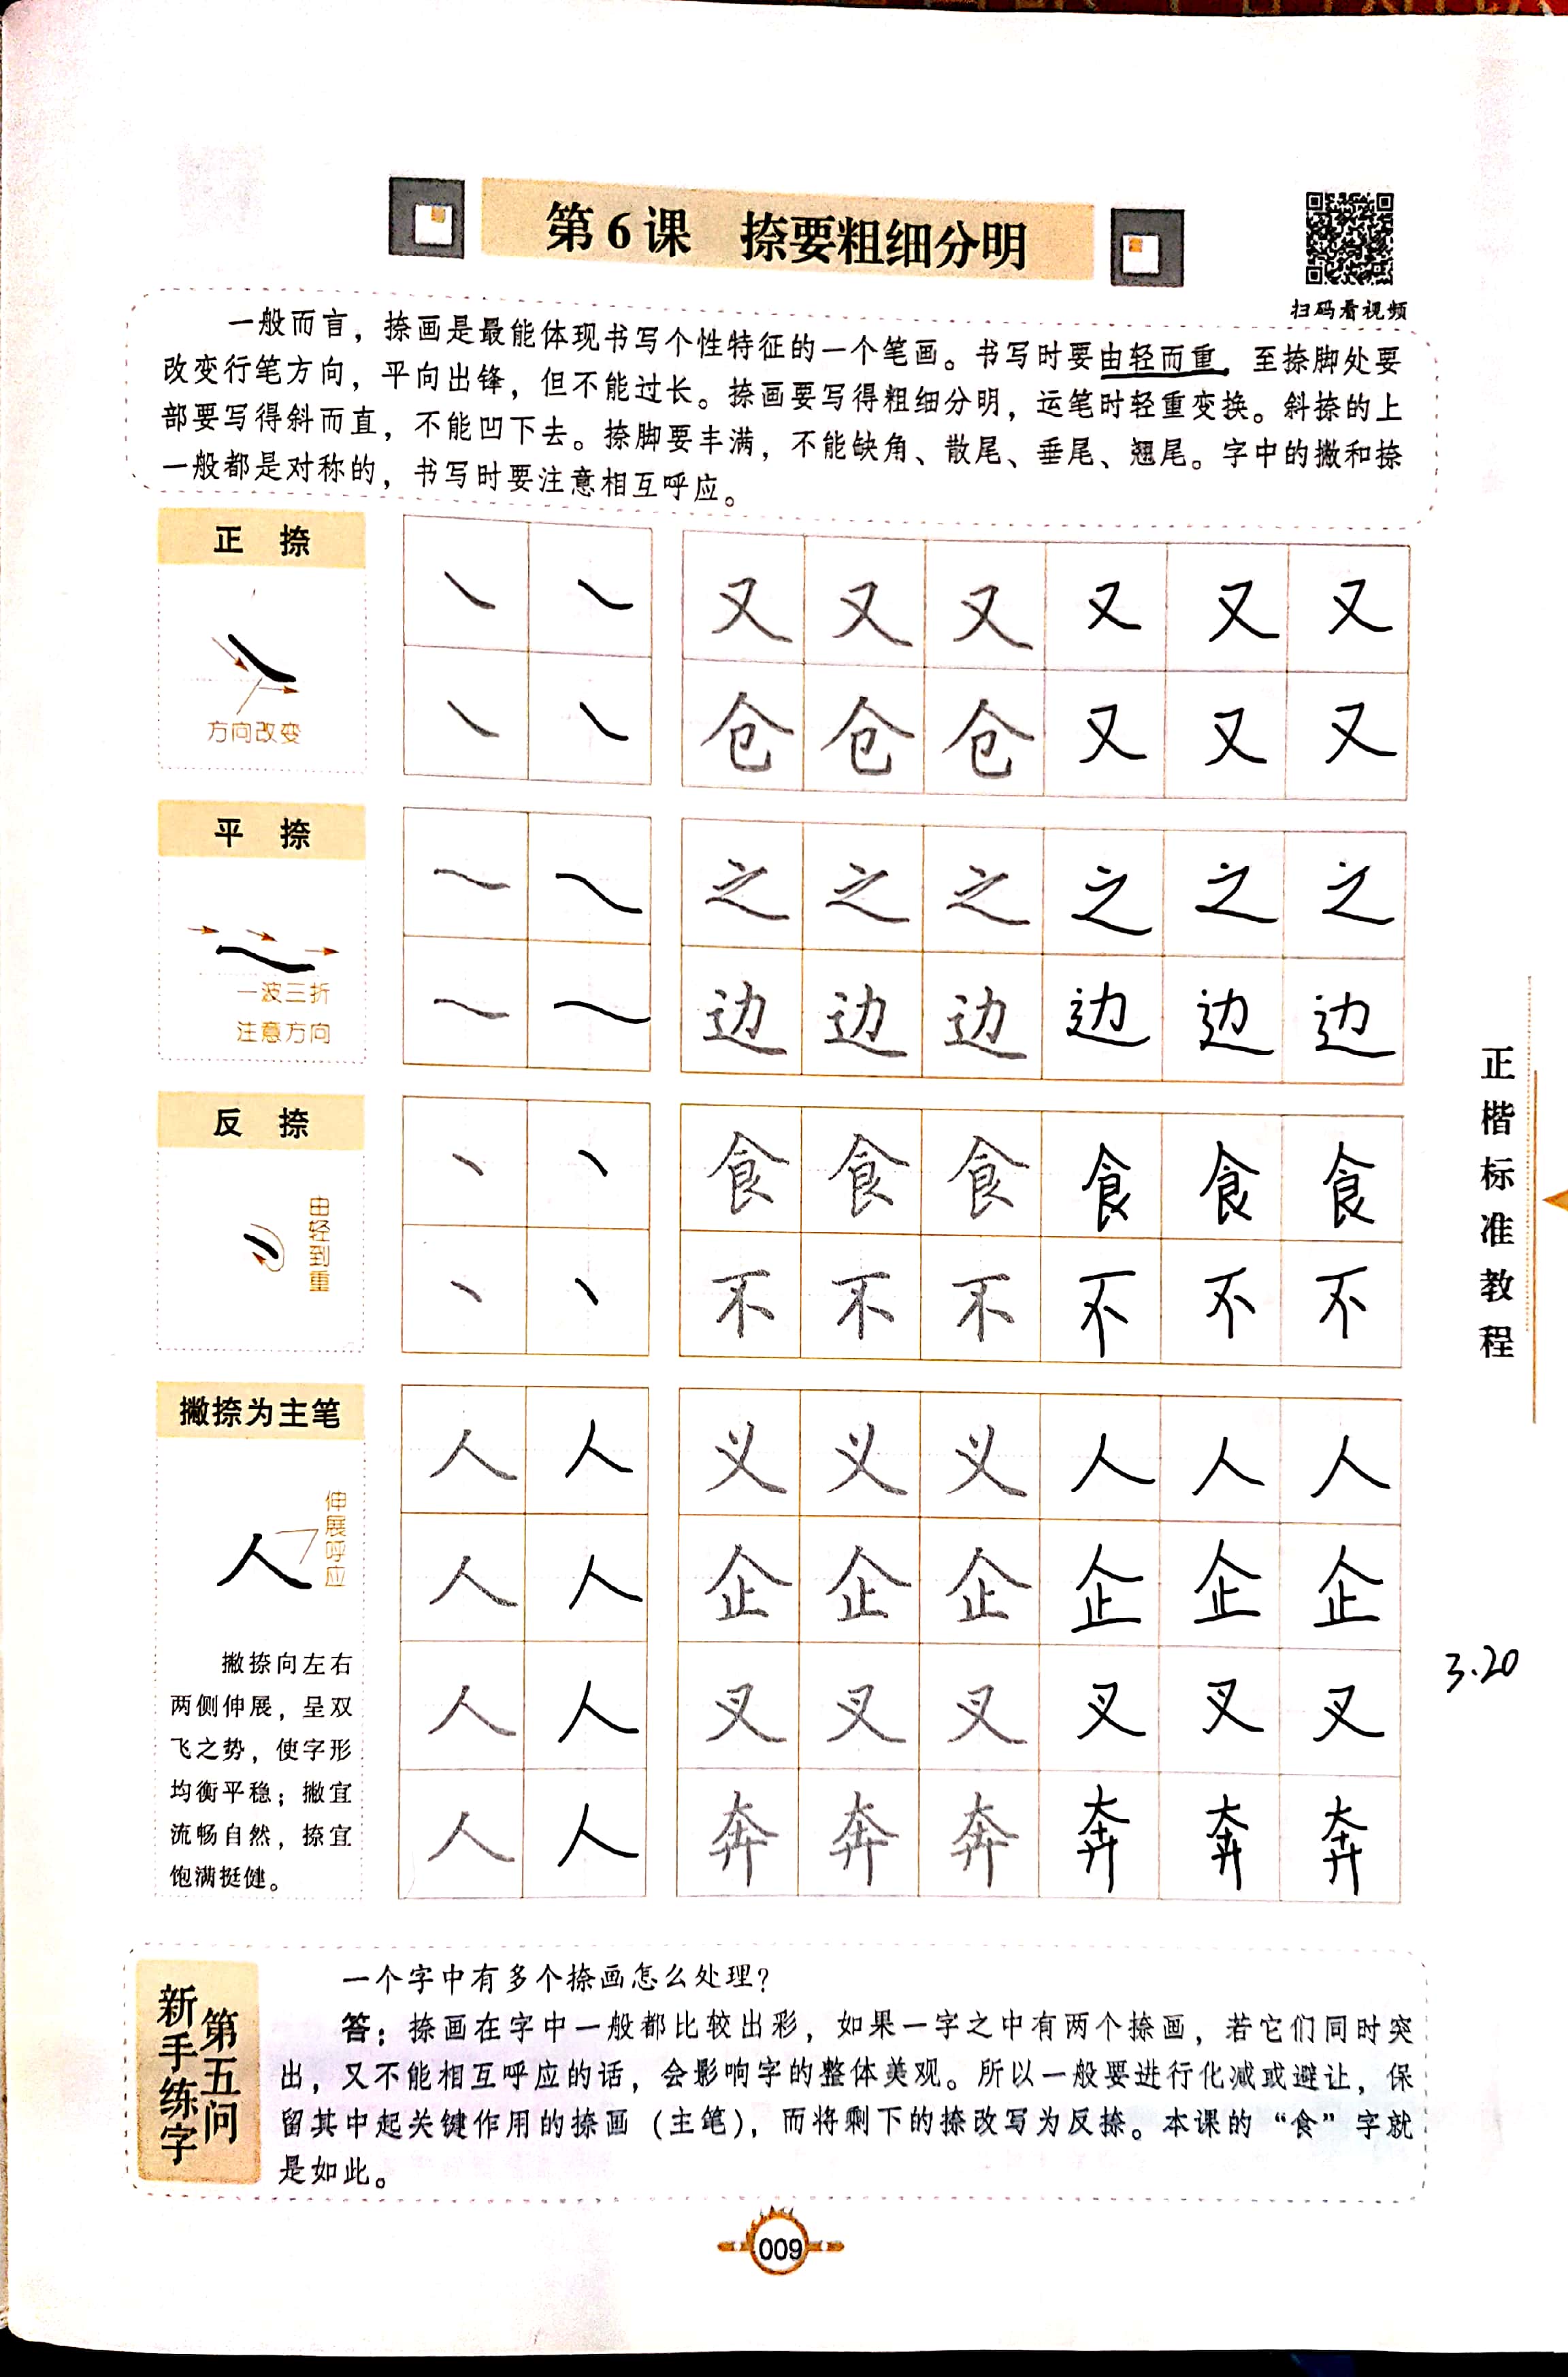 第6课 捺要粗细分明
扫码看视频
一般而言，捺画是最能体现书写个性特征的一个笔画。书写时要由轻而重，至捺脚处要
改变行笔方向，平向出锋，但不能过长。捺画要写得粗细分明，运笔时轻重变换。斜捺的上
部要写得斜而直，不能凹下去。捺脚要丰满，不能缺角、散尾、垂尾、翘尾。字中的撇和捺
一般都是对称的，书写时要注意相互呼应。
正 捺
方向改变
㇏ ㇏ 又 又 又 又 又 又
㇏ ㇏ 仓 仓 仓 又 又 又
平 捺
一波三折
注意方向
㇏ ㇏ 之 之 之 之 之 之
㇏ ㇏ 边 边 边 边 边 边
反 捺
由轻到重
㇔ ㇔ 食 食 食 食 食 食
㇔ ㇔ 不 不 不 不 不 不
撇捺为主笔
伸展呼应
人
撇捺向左右
两侧伸展，呈双
飞之势，使字形
均衡平稳；撇宜
流畅自然，捺宜
饱满挺健。
人 人 义 义 义 人 人 人
人 人 企 企 企 企 企 企
人 人 叉 叉 叉 叉 叉 叉
人 人 奔 奔 奔 奔 奔 奔
正楷标准教程
3.20
新手练字
第五问
一个字中有多个捺画怎么处理？
答：捺画在字中一般都比较出彩，如果一字之中有两个捺画，若它们同时突
出，又不能相互呼应的话，会影响字的整体美观。所以一般要进行化减或避让，保
留其中起关键作用的捺画（主笔），而将剩下的捺改写为反捺。本课的“食”字就
是如此。
009